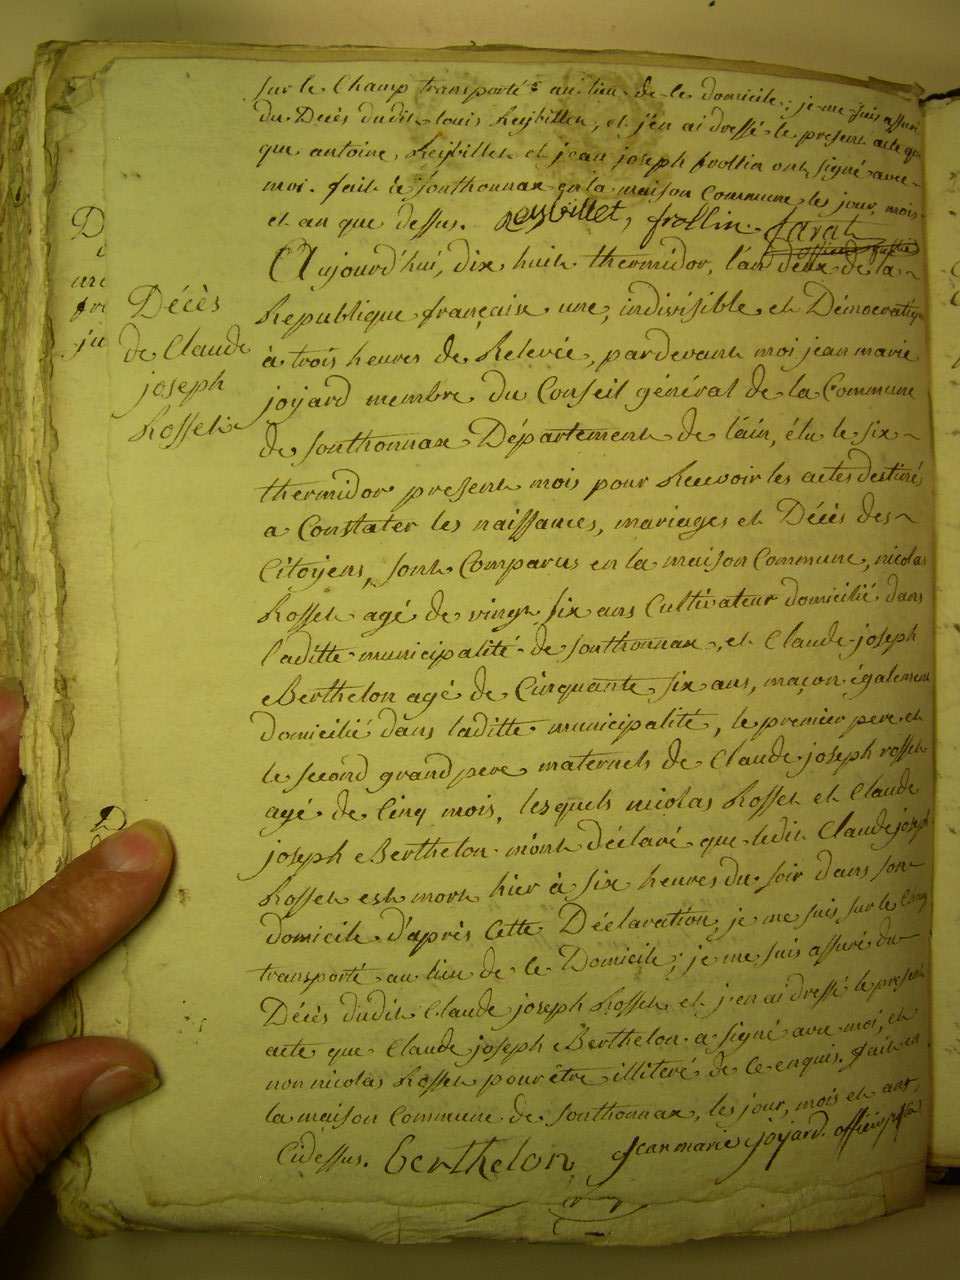 sur le champ transporté au lieu de ce domicile; je me suis assuré
du Décès dudit louis Reybillet, et j'en ai dressé le present acte que
que antoine Reybillet et jean joseph frollin ont signé avec
moi. fait à sonthonnax en la maison Commune les jour, mois
et an que dessus. Reybillet, frollin. farat
Aujourd'hui, dix huit thermidor, l'an deux de la
Republique française une, indivisible et Démocratique
à trois heures de Relevée, pardevant moi jean marie
joyard membre du Conseil général de la Commune
de sonthonnax Département de l'ain, élu le six
thermidor present mois pour Recevoir les actes destinés
a Constater les naissances, mariages et Décès des
Citoyens, sont Comparus en la maison Commune, nicolas
Rosset agé de vingt six ans Cultivateur domicilié dans
laditte municipalité de sonthonnax, et Claude joseph
Berthelon agé de Cinquante six ans, maçon également
domicilié dans laditte municipalité, le premier pere et
le second grand pere maternels de Claude joseph rosset
agé de Cinq mois, lesquels nicolas Rosset et Claude
joseph Berthelon m'ont déclaré que ledit Claude joseph
Rosset est mort hier à six heures du soir dans son
domicile d'après Cette Déclaration, je me suis sur le champ
transporté au lieu de ce Domicile; je me suis assuré du
Décès dudit Claude joseph Rosset et j'en ai dressé le present
acte que Claude joseph Berthelon a signé avec moi, et
non nicolas Rosset pour être illiteré de ce enquis. fait en
la maison Commune de sonthonnax, les jour, mois et an
Cidessus. berthelon Jean marie joyard officier public
Décès
de Claude
joseph
Rosset